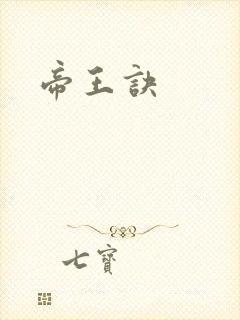 帝王訣
七寶